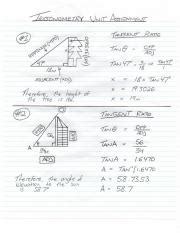 TRIGONOMETRY UNIT ASSIGNMENT
#1
TANGENT RATIO
TAN θ = OPP
ADJ
TAN 47° = x
18
x = 18 x TAN 47°
x = 19.3026
x = 19.3
47°
18m
ADJACENT (ADJ)
Therefore, the height of
the tree is 19.3m.
#2
TANGENT RATIO
TAN θ = OPP
ADJ
TAN A = 56
34
TAN A = 1.6470
A = TAN⁻¹ 1.6470
A = 58.7353
A = 58.7
34m
ADJ
Therefore, the angle of
elevation to the sun
is 58.7°